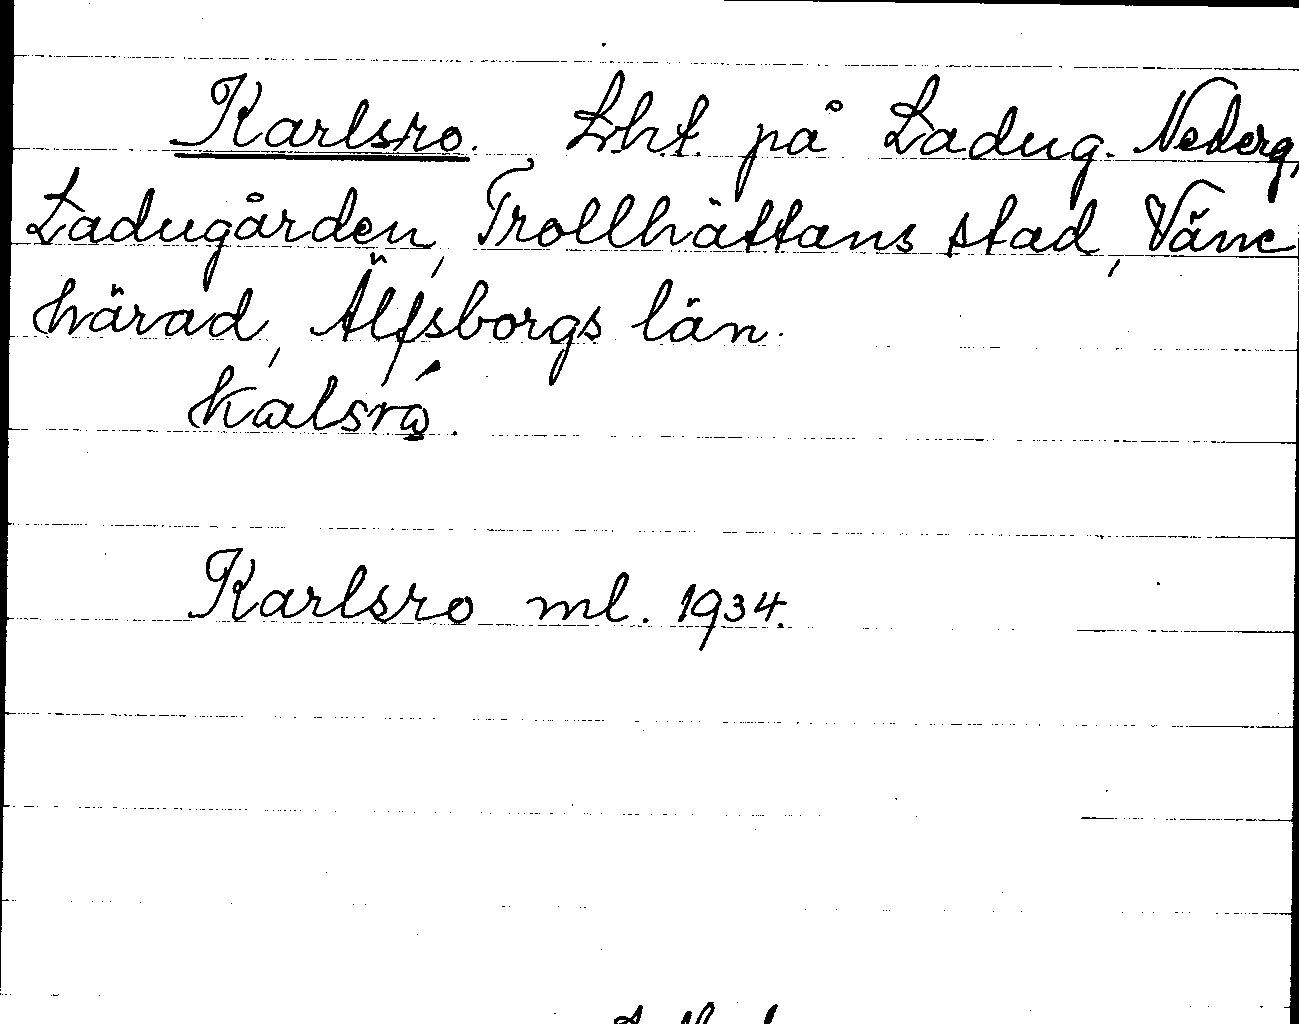 Karlsro. Lht. på Ladug. Nederg,
Ladugården, Trollhättans stad, Väne
härad, Älfsborgs län.
kalsró̱.
Karlsro ml. 1934.